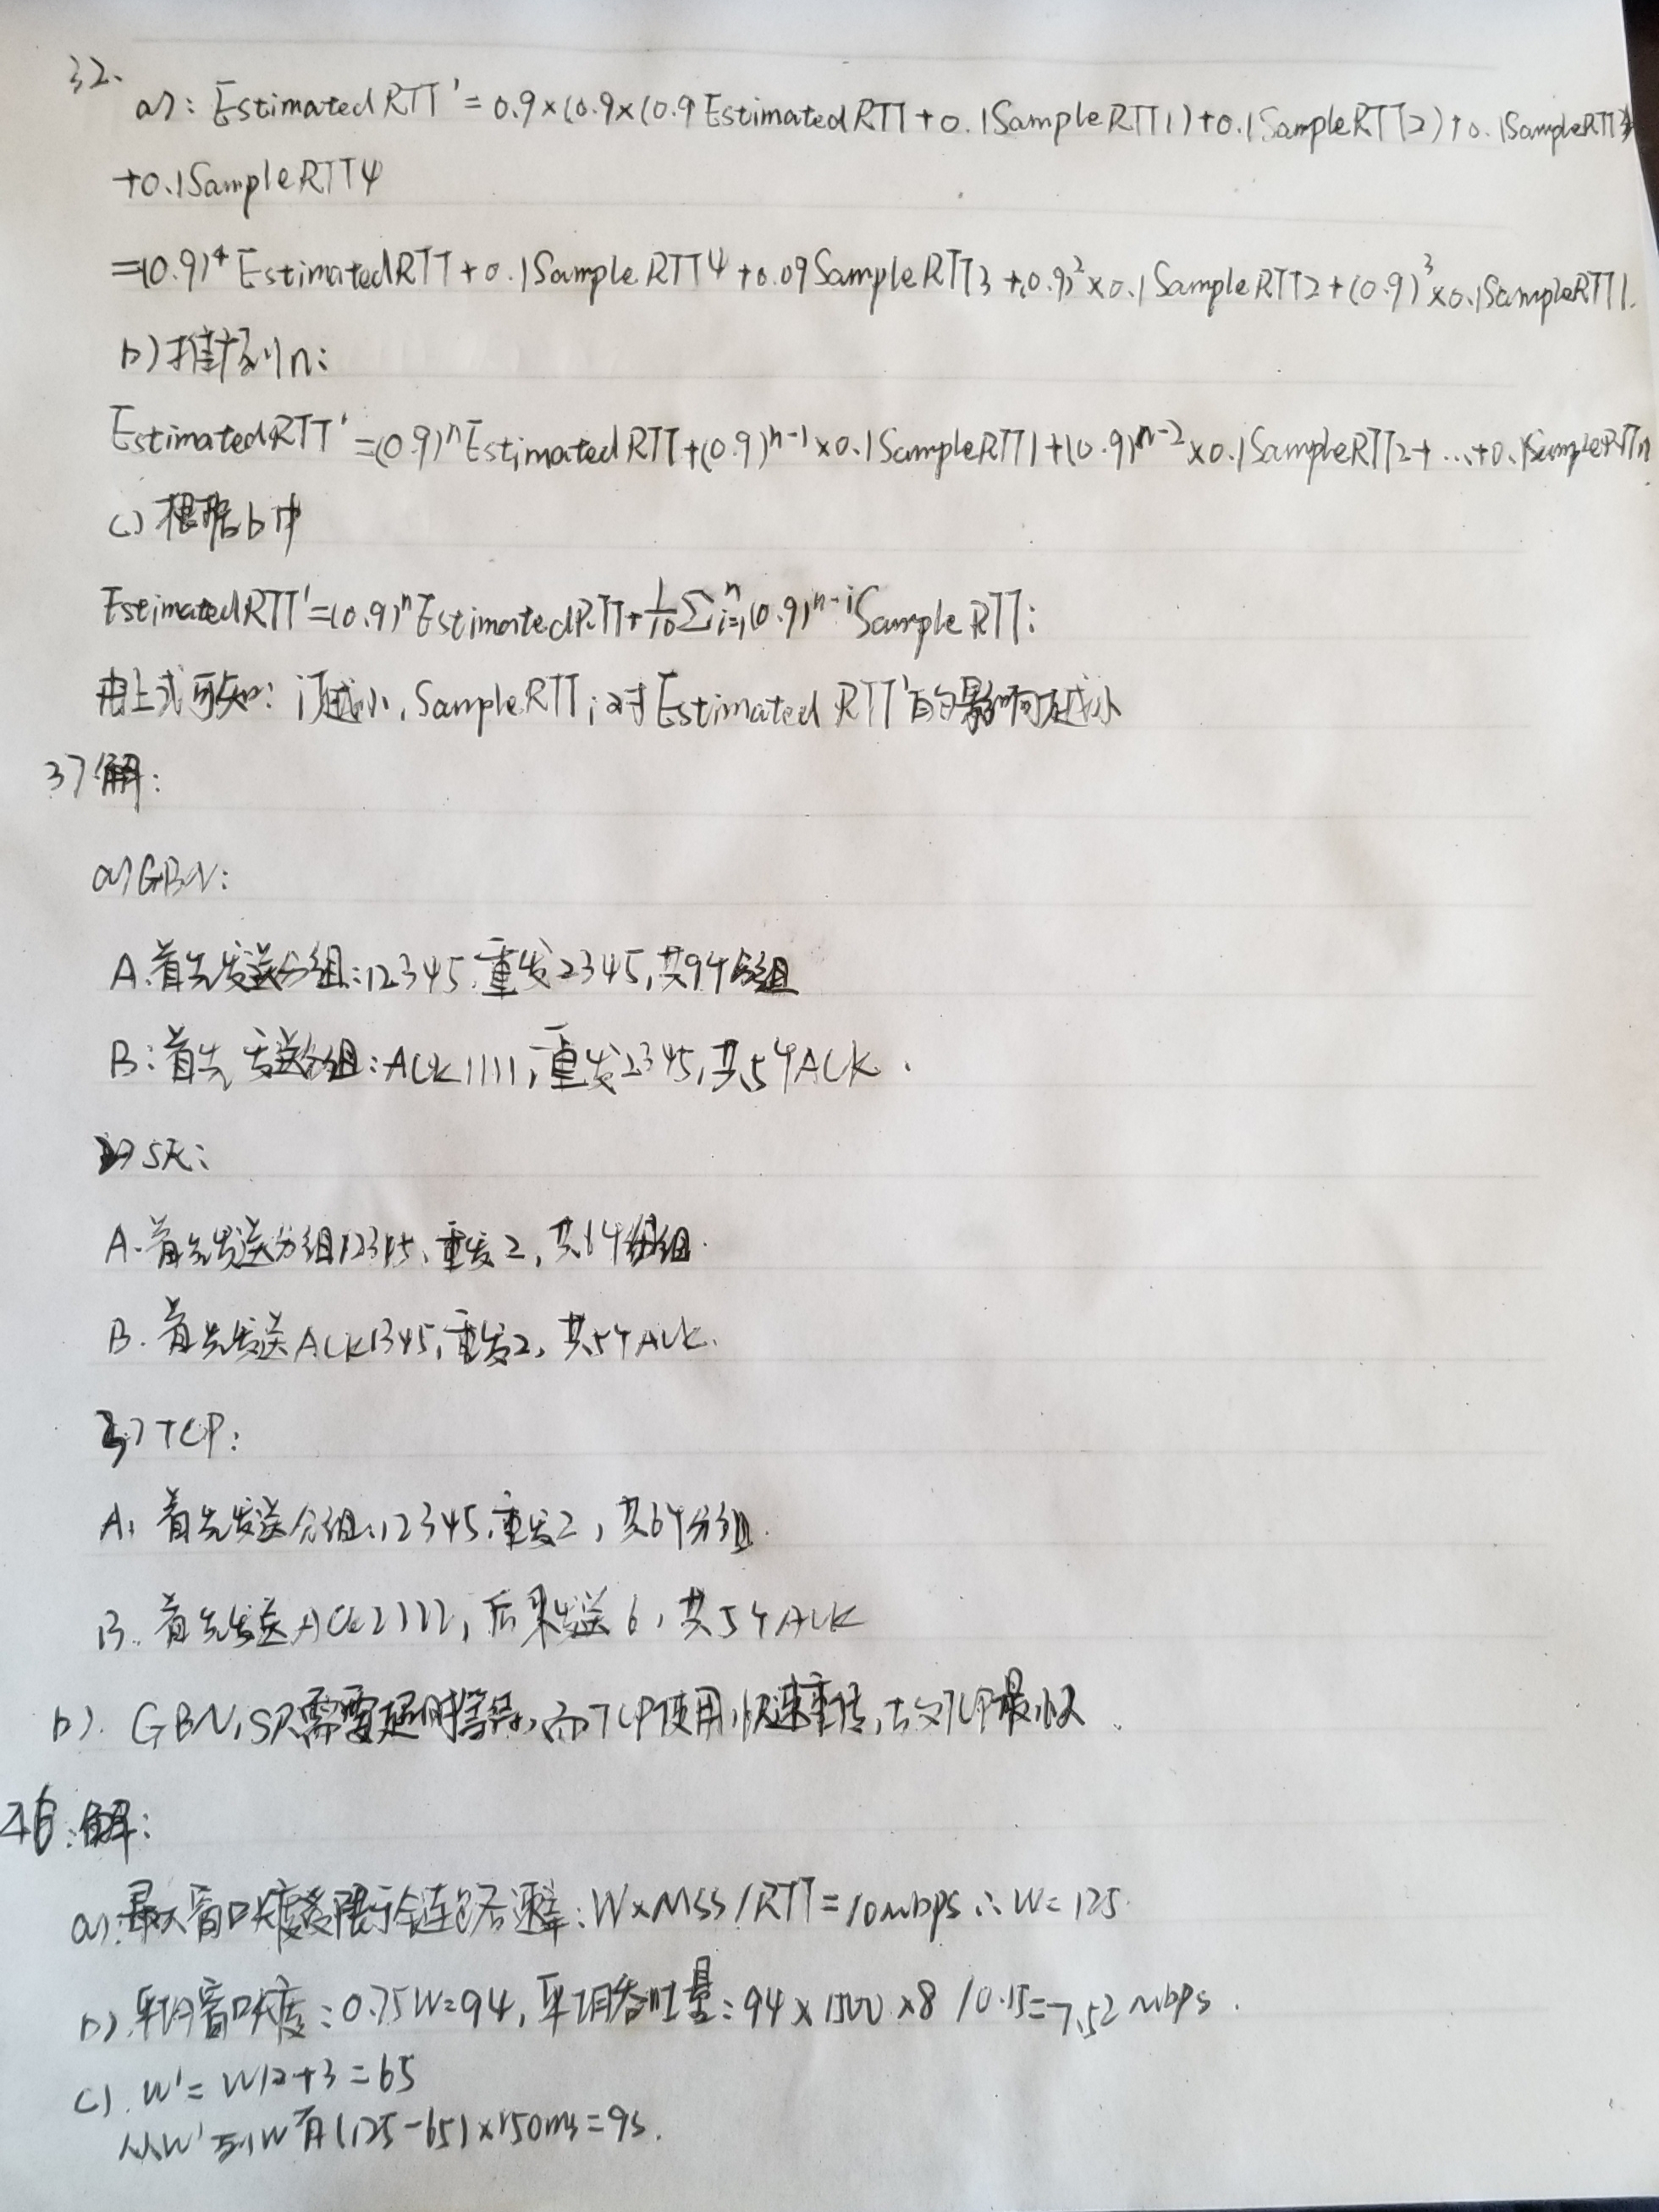 32.
a): EstimatedRTT' = 0.9×(0.9×(0.9 EstimatedRTT + 0.1SampleRTT1) + 0.1SampleRTT2) + 0.1SampleRTT3
+0.1SampleRTT4
=(0.9)⁴ EstimatedRTT + 0.1SampleRTT4 + 0.09SampleRTT3 + (0.9)² × 0.1SampleRTT2 + (0.9)³ × 0.1SampleRTT1.
b) 推广到n:
EstimatedRTT' = (0.9)ⁿ EstimatedRTT + (0.9)ⁿ⁻¹ × 0.1SampleRTT1 + (0.9)ⁿ⁻² × 0.1SampleRTT2 + ... + 0.1SampleRTTn
c) 根据b中
EstimatedRTT' = (0.9)ⁿ EstimatedRTT + 1/10 ∑ⁿi=1 (0.9)ⁿ⁻ⁱ SampleRTTi
由上式可知: i越小, SampleRTTi对EstimatedRTT'的影响越小
37 解:
a) GBN:
A. 首先发送分组:12345, 重发2345, 共9个分组
B: 首先发送分组: ACK1111, 重发2345, 共5个ACK.
2) SR:
A. 首先发送分组12345, 重发2, 共6个分组.
B. 首先发送ACK1345, 重发2, 共5个ACK.
3) TCP:
A. 首先发送分组:12345, 重发2, 共6个分组.
B. 首先发送ACK2222, 后来发送6, 共5个ACK
b). GBN, SR需要超时等待, 而TCP使用快速重传, 故TCP最快.
46. 解:
a). 最大窗口长度受限于链路速率: W×MSS/RTT=10Mbps ∴W=125.
b). 平均窗口长度: 0.75W=94, 平均吞吐量: 94×1500×8/0.15=7.52Mbps.
c). W'=W/2+3=65
从W'到W有(125-65)×150ms=9s.